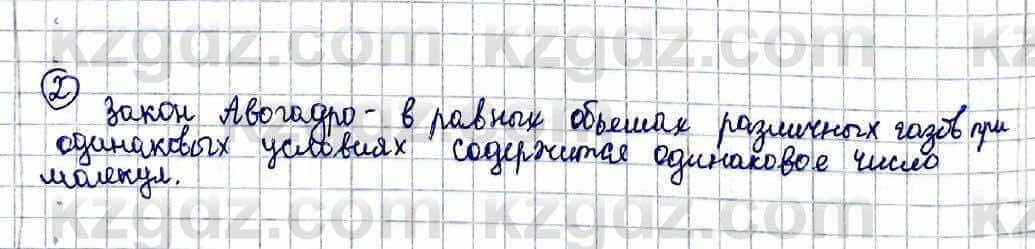 kzgdz.com kzgdz.com kz
②
закон Авогадро - в равных объемах различных газов при
одинаковых условиях содержится одинаковое число
молекул.
kzgdz.com kzgdz.com kz